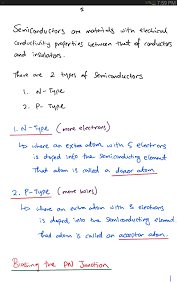 7:59 PM
Semiconductors are materials with electrical
conductivity properties between that of conductors
and insulators.
There are 2 types of Semiconductors
1. N - Type
2. P - Type
1. N-Type (more electrons)
↳ where an extra atom with 5 electrons
is doped into the semiconducting element
That atom is called a donor atom.
2. P-Type (more holes)
↳ where an extra atom with 3 electrons
is doped into the semiconducting element
That atom is called an acceptor atom.
Biasing the PN Junction
1